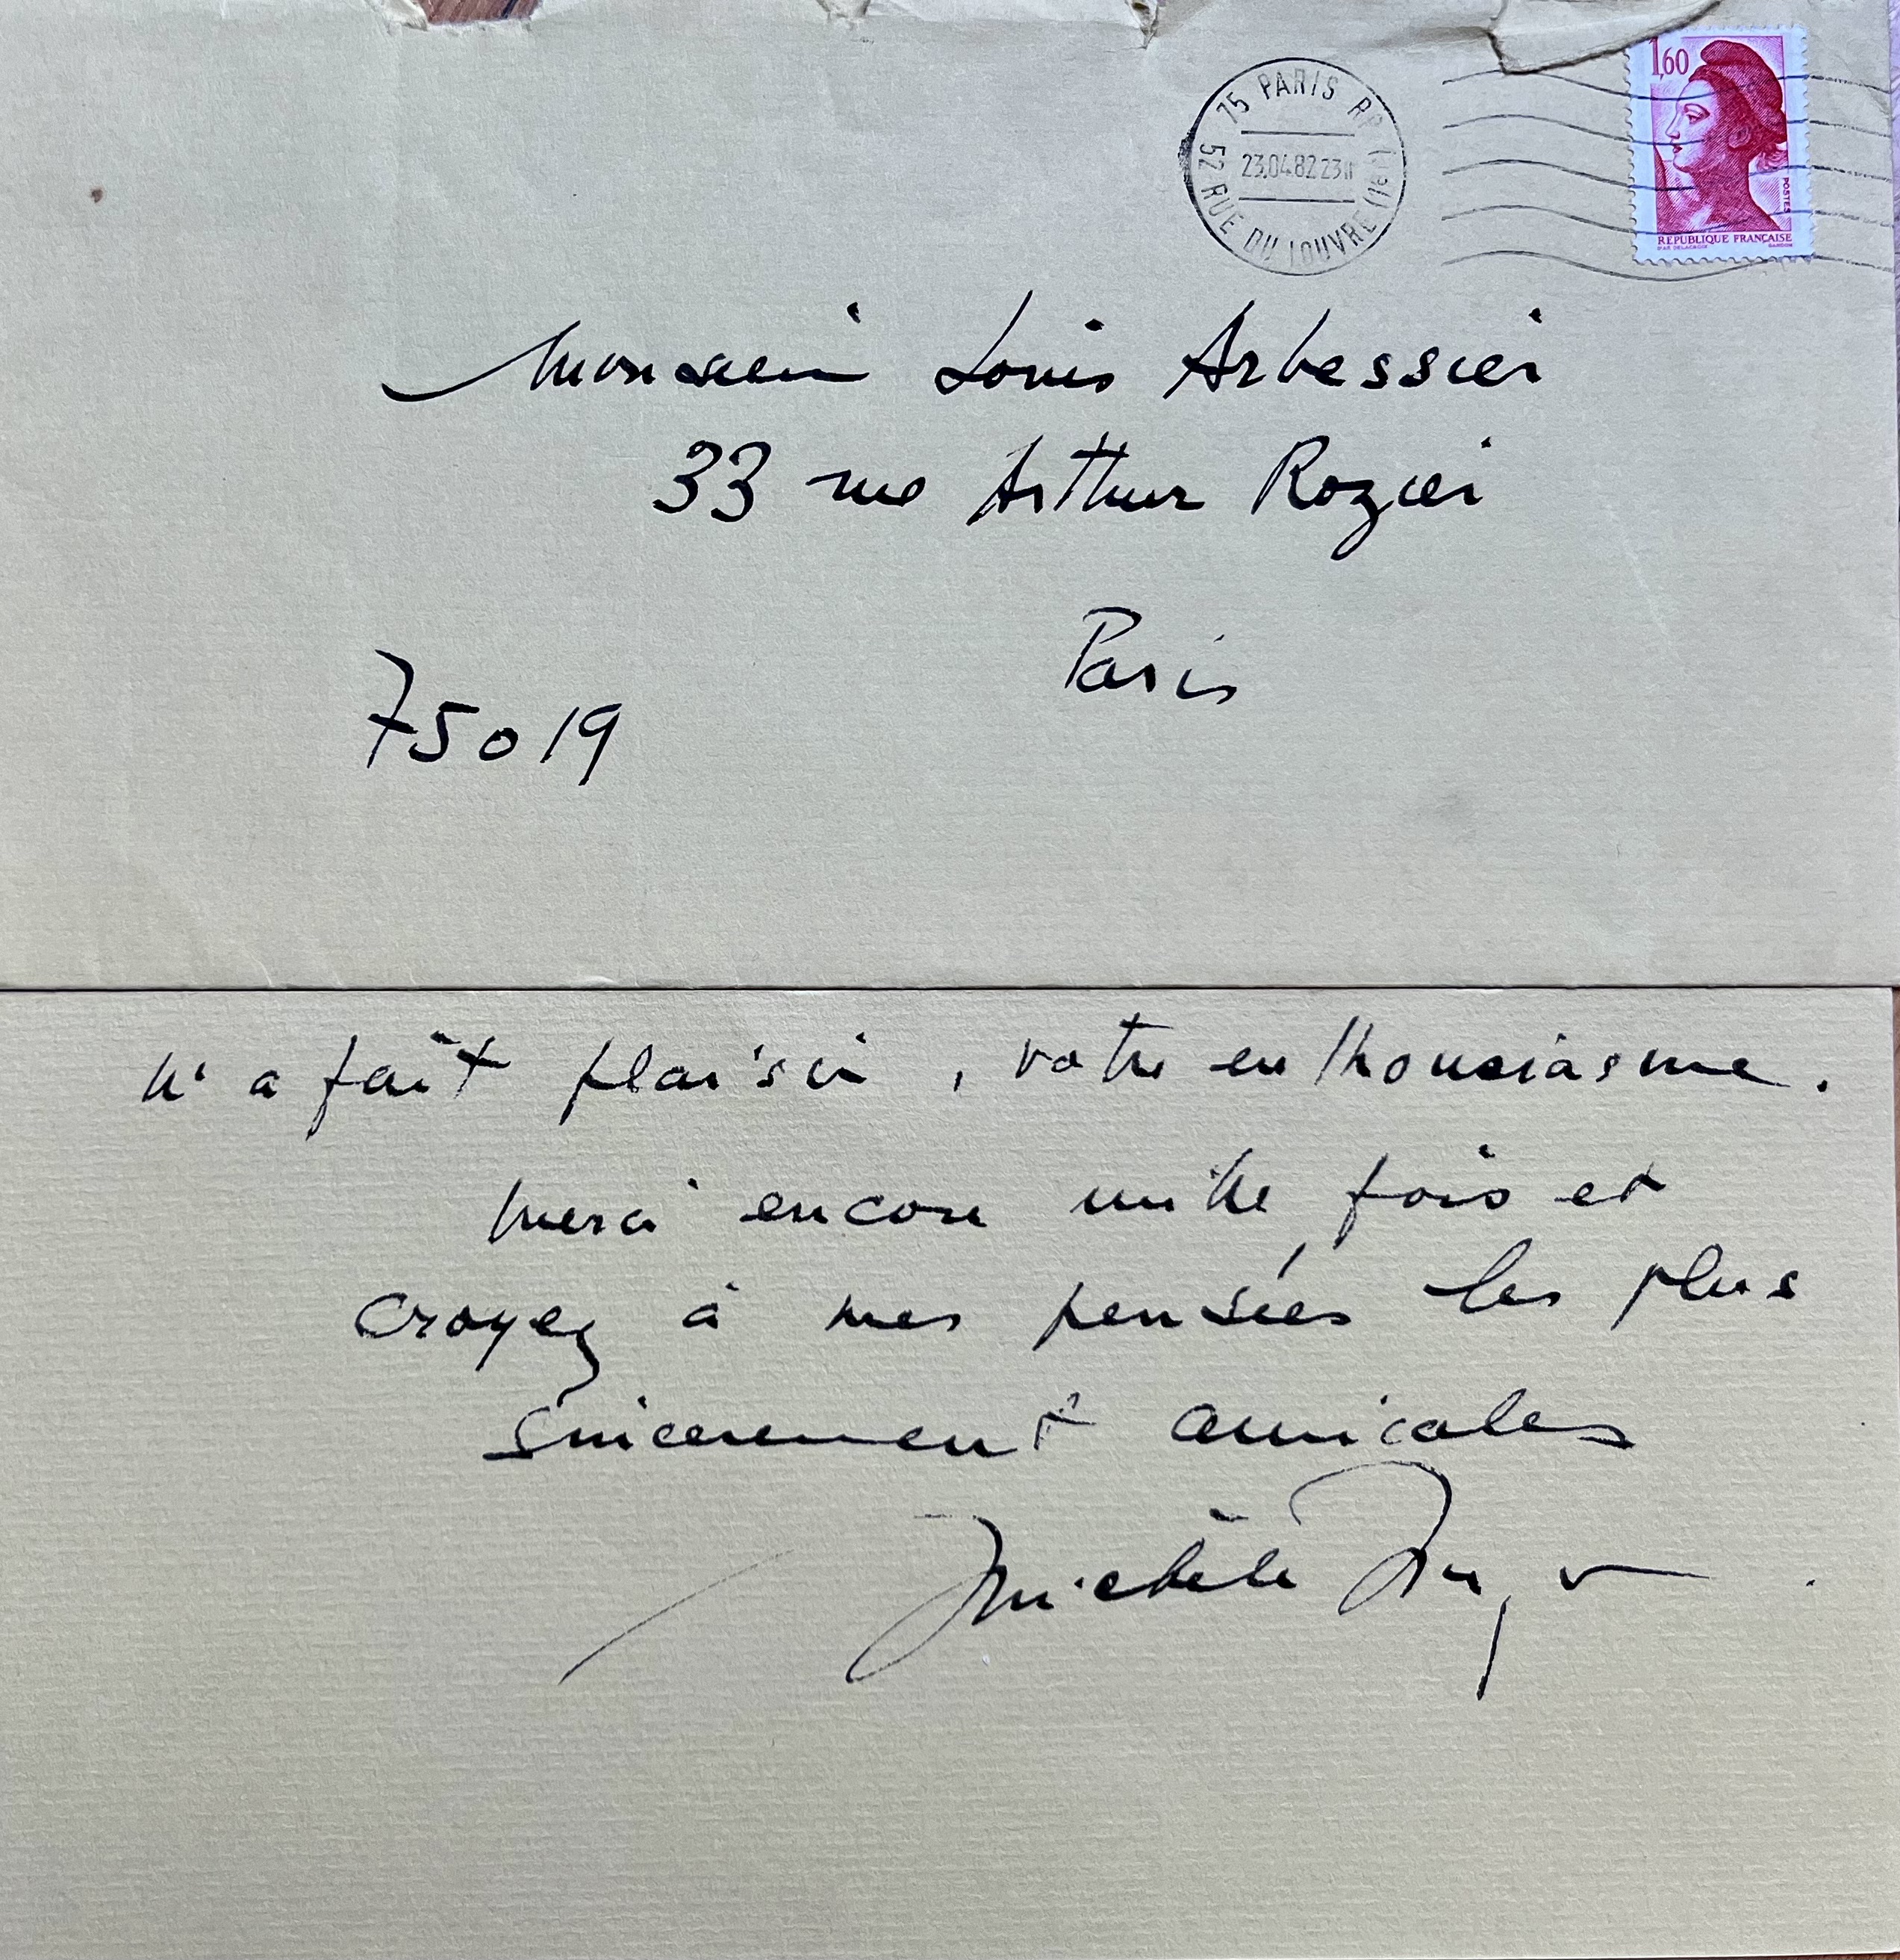 75 PARIS RP (1er)
52 RUE DU LOUVRE
23.04.82 23H
1,60
POSTES
REPUBLIQUE FRANÇAISE
D'AP. DELACROIX GANDON
Monsieur Louis Arbessier
33 rue Arthur Rozier
Paris
75019
m'a fait plaisir, votre enthousiasme.
Merci encore mille fois et
croyez à mes pensées les plus
sincèrement amicales
Michèle